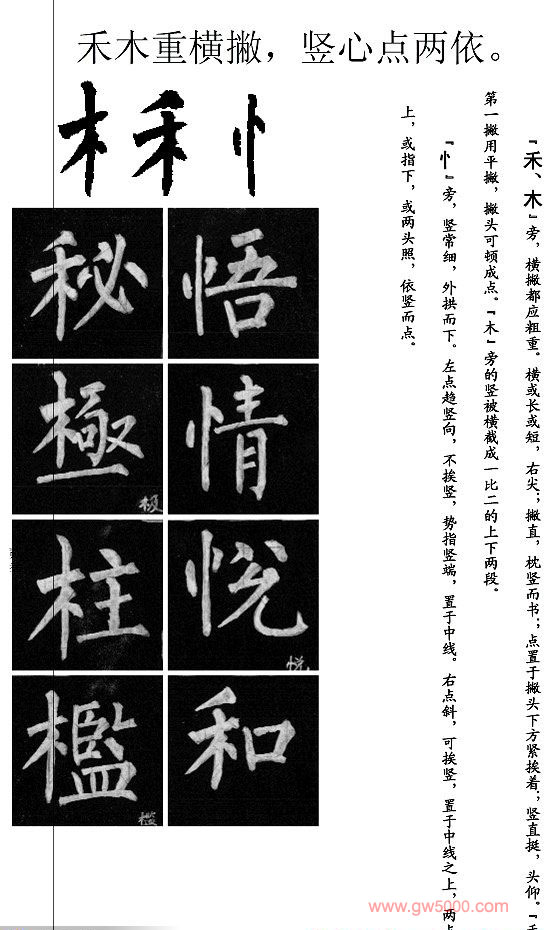 禾木重横撇，竖心点两依。
木 禾 忄
秘 悟
極 情
极
柱 悦
悦
檻 和
槛
『禾、木』旁，横撇都应粗重。横或长或短，右尖；撇直，枕竖而书；点置于撇头下方紧挨着；竖直挺，头仰。『禾
第一撇用平撇，撇头可顿成点。『木』旁的竖被横截成一比二的上下两段。
『忄』旁，竖常细，外拱而下。左点趋竖向，不挨竖，势指竖端，置于中线。右点斜，可挨竖，置于中线之上，两点
上，或指下，或两头照，依竖而点。
www.gw5000.com